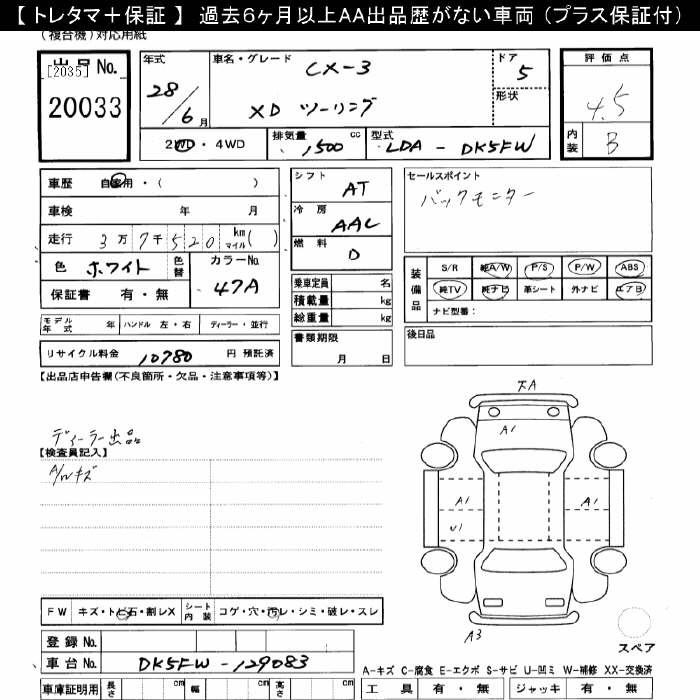 【 トレタマ＋保証 】 過去６ヶ月以上ＡＡ出品歴がない車両（プラス保証付）
(複合機)対応用紙
出品 No.
[2035]
20033
年式
28/6月
車名・グレード
CX-3
XD ツーリング
ドア
5
形状
評価点
4.5
内装
B
2WD・4WD
排気量
1500 cc
型式
LDA - DK5FW
車歴 自家用・( )
車検 年 月
走行 3万7千520 km マイル( )
色 ホワイト 色替 カラーNo. 47A
保証書 有・無
シフト AT
冷房 AAC
燃料 D
乗車定員 名
積載量 kg
総重量 kg
セールスポイント
バックモニター
装備品
S/R 純A/W P/S P/W ABS
純TV 純ナビ 革シート 外ナビ エアB
ナビ型番：
モデル年式 年 ハンドル 左・右 ディーラー・並行
書類期限 月 日
後日品
リサイクル料金 10780 円 預託済
【出品店申告欄(不良箇所・欠品・注意事項等)】
ディーラー出品
【検査員記入】
A/Wキズ
大A
A1
A1 A1
U1
A3
スペア
FW キズ・トビ石・割レX シート内装 コゲ・穴・汚レ・シミ・破レ・スレ
登録 No.
車台 No. DK5FW-129083
車庫証明用 長さ cm 幅 cm 高さ cm
A-キズ C-腐食 E-エクボ S-サビ U-凹ミ W-補修 XX-交換済
工具 有・無 ジャッキ 有・無